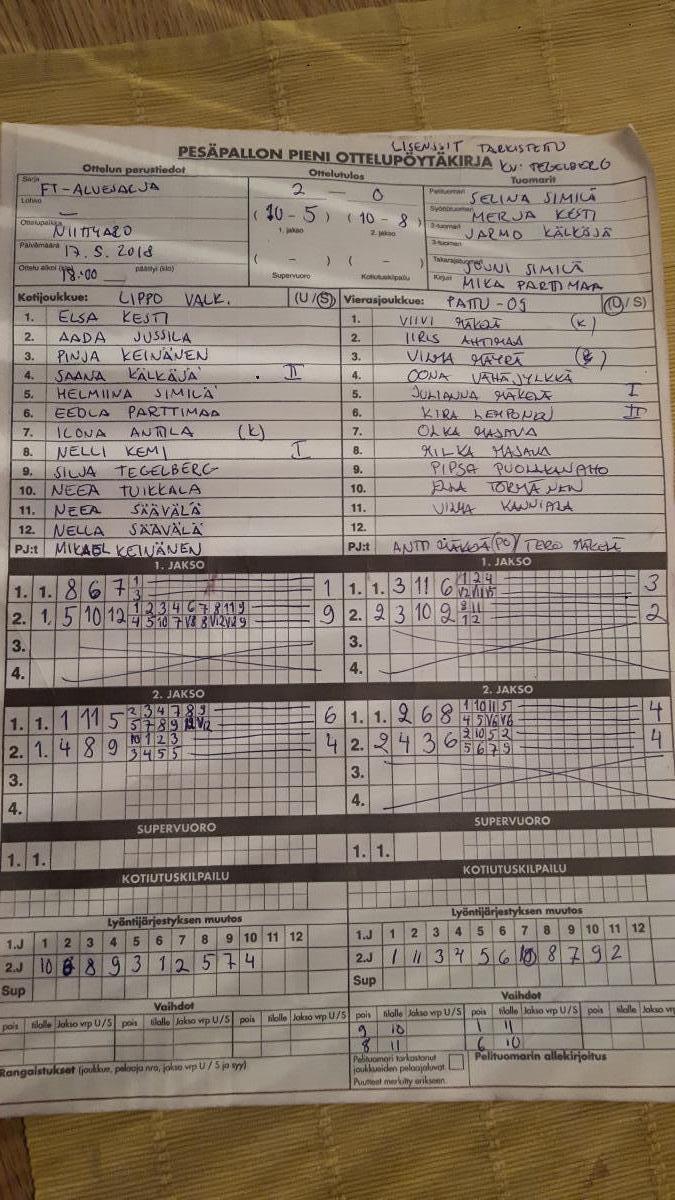 LISENSSIT TARKISTETTU
PESÄPALLON PIENI OTTELUPÖYTÄKIRJA KV: TEGELBERG
Ottelun perustiedot
Sarja FT-ALUESARJA
Lohko —
Ottelupaikka NIITTYARO
Päivämäärä 17.5.2018
Ottelu alkoi (klo) 18.00 päättyi (klo)
Ottelutulos
2 — 0
(10 - 5) (10 - 8)
1. jakso 2. jakso
( - ) ( - )
Supervuoro Kotiutuskilpailu
Tuomarit
Pelituomari SELINA SIMILÄ
Syöttötuomari MERJA KESTI
2-tuomari JARMO KÄLKÄJÄ
3-tuomari
Takarajatuomari JOUNI SIMILÄ
Kirjuri MIKA PARTTIMAA
Kotijoukkue: LIPPO VALK. (U/S)
1. ELSA KESTI
2. AADA JUSSILA
3. PINJA KEINÄNEN
4. SAANA KÄLKÄJÄ . II
5. HELMIINA SIMILÄ
6. EEDLA PARTTIMAA
7. ILONA ANTTILA (k)
8. NELLI KEMI I
9. SILJA TEGELBERG
10. NEEA TUIKKALA
11. NEEA SÄÄVÄLÄ
12. NELLA SÄÄVÄLÄ
PJ:t MIKAEL KEINÄNEN
Vierasjoukkue: PATTU-09 (U/S)
1. VIIVI MÄKELÄ (K)
2. IIRIS AHTIMAA
3. VILMA MÄYRÄ
4. OONA VÄHÄJYLKKÄ
5. JULIANNA MÄKELÄ I
6. KIRA LEMPONEN II
7. MASAVA
8. MILKA MASAVA
9. PIPSA PUOLAKANAHO
10. TÖRMÄNEN
11. VILMA
12.
PJ:t ANTTI MÄKELÄ (PO) / TERO MÄKELÄ
1. JAKSO
1. 1. 8 6 7 1 1
3
2. 1. 5 10 12 1 2 3 4 6 7 8 11 9 9
4 5 10 7 V8 8 V12 V2 9
3.
4.
1. JAKSO
1. 1. 3 11 6 1 2 4 3
V2 V11 V5
2. 2 3 10 2 2
1 2
3.
4.
2. JAKSO
1. 1. 1 11 5 2 3 4 7 8 9 6
5 7 8 9 V12
2. 1. 4 8 9 10 1 2 3 4
3 4 5 5
3.
4.
2. JAKSO
1. 1. 2 6 8 1 10 11 5 4
4 5 V6 V6
2. 2 4 3 6 2 10 5 2 4
5 6 7 9
3.
4.
SUPERVUORO
1. 1.
SUPERVUORO
1. 1.
KOTIUTUSKILPAILU
KOTIUTUSKILPAILU
Lyöntijärjestyksen muutos
1.J 1 2 3 4 5 6 7 8 9 10 11 12
2.J 10 6 8 9 3 1 2 5 7 4
Sup
Lyöntijärjestyksen muutos
1.J 1 2 3 4 5 6 7 8 9 10 11 12
2.J 1 11 3 4 5 6 10 8 7 9 2
Sup
Vaihdot
pois tilalle Jakso vrp U/S pois tilalle Jakso vrp U/S pois tilalle Jakso vrp U/S
Vaihdot
pois tilalle Jakso vrp U/S pois tilalle Jakso vrp U/S pois tilalle Jakso vrp
9 10 1 11
8 11 6 10
Rangaistukset (joukkue, pelaaja nro, jakso vrp U / S ja syy)
Pelituomari tarkastanut
joukkueiden pelaajaluvat.
Puutteet merkitty erikseen.
Pelituomarin allekirjoitus